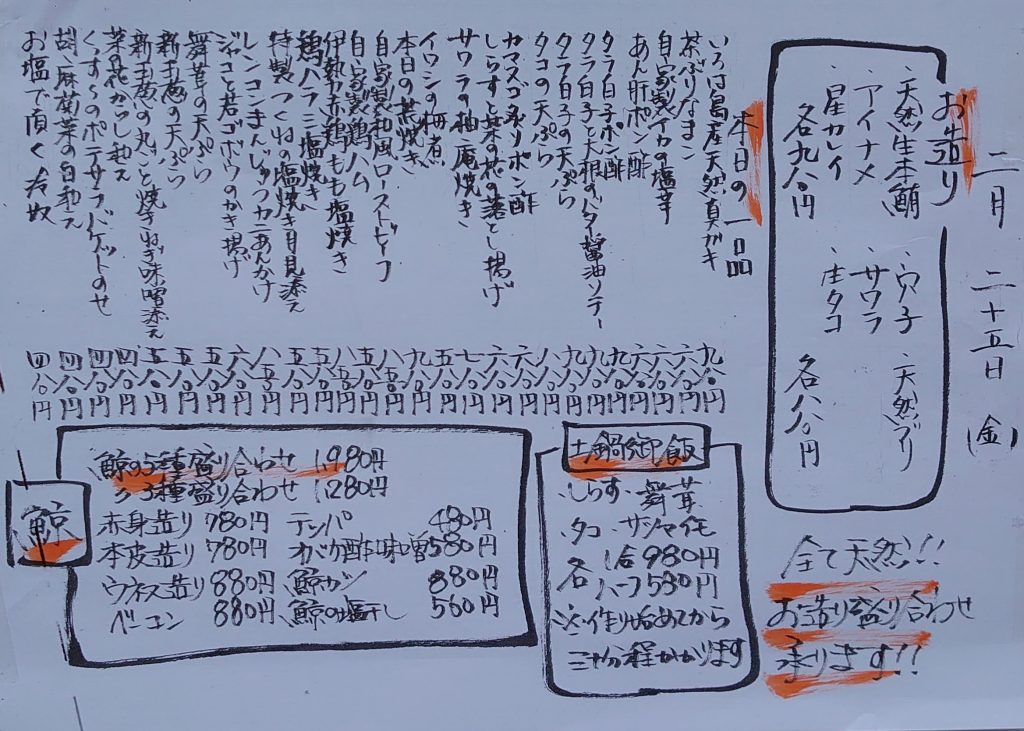 二月 二十五日 (金)
お造り
・天然生本鮪 ・穴子 ・天然ブリ
・アイナメ ・サワラ
・星カレイ ・庄タコ
各九八〇円 各八八〇円
全て天然!!
お造り盛り合わせ
承ります!!
本日の一品
いろは島産天然真ガキ 九八〇円
茶ぶりなまこ 六八〇円
自家製イカの塩辛 六八〇円
あん肝ポン酢 六八〇円
タラ白子ポン酢 九八〇円
タラ白子と大根のバター醤油ソテー 九八〇円
タラ白子の天ぷら 九八〇円
タコの天ぷら 八八〇円
カマスゴ炙りポン酢 六八〇円
しらすと菜の花の落とし揚げ 六八〇円
サワラの柚庵焼き 七八〇円
イワシの梅煮 五八〇円
本日の蒸焼き 九八〇円
自家製和風ローストビーフ
自家製鶏ハム
伊勢赤鶏もも塩焼き
鶏ハラミ塩焼き
特製つくねの塩焼き月見添え
レンコンまんじゅうカニあんかけ
ジャコと若ゴボウのかき揚げ 六八〇円
舞茸の天ぷら 五八〇円
新玉葱の天ぷら 五八〇円
新玉葱の丸ごと焼きねぎ味噌添え 五八〇円
菜の花からし和え 四八〇円
くずし〜のポテサラバケットのせ 四八〇円
胡麻菊菜の白和え 四八〇円
お塩で頂く冷奴 四八〇円
土鍋御飯
・しらす ・舞茸
・タコ ・サツマイモ
各 1合 980円
ハーフ 530円
※作り始めてから
三十分程かかります
鯨
鯨の5種盛り合わせ 1,980円
〃 3種盛り合わせ 1,280円
赤身造り 780円 テッパ 480円
本皮造り 780円 オバケ酢味噌 580円
ウネス造り 880円 鯨カツ 880円
ベーコン 880円 鯨の塩干し 560円